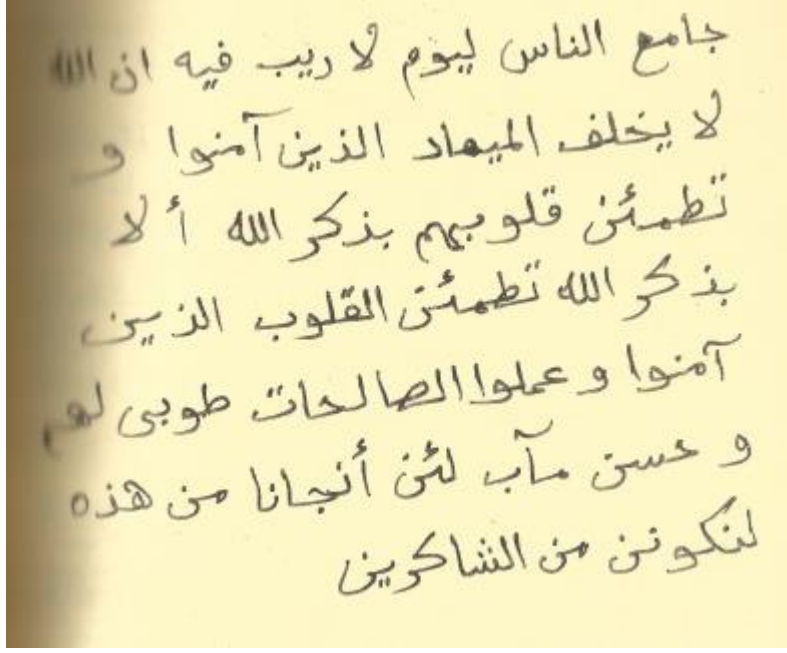 جامع الناس ليوم لا ريب فيه ان الله
لا يخلف الميعاد الذين آمنوا و
تطمئن قلوبهم بذكر الله ألا
بذكر الله تطمئن القلوب الذين
آمنوا و عملوا الصالحات طوبى لهم
و حسن مآب لئن أنجانا من هذه
لنكونن من الشاكرين